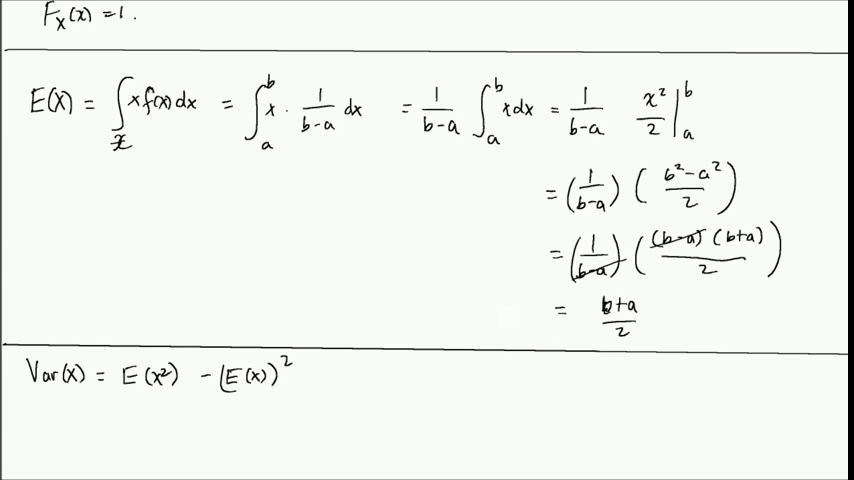 F_X(x) = 1.
E(X) = ∫_𝒳 x f(x) dx = ∫_a^b x · 1/(b-a) dx = 1/(b-a) ∫_a^b x dx = 1/(b-a) x²/2 |_a^b
= (1/(b-a)) ((b²-a²)/2)
= (1/(b-a)) ((b-a)(b+a)/2)
= (b+a)/2
Var(X) = E(x²) - (E(x))²